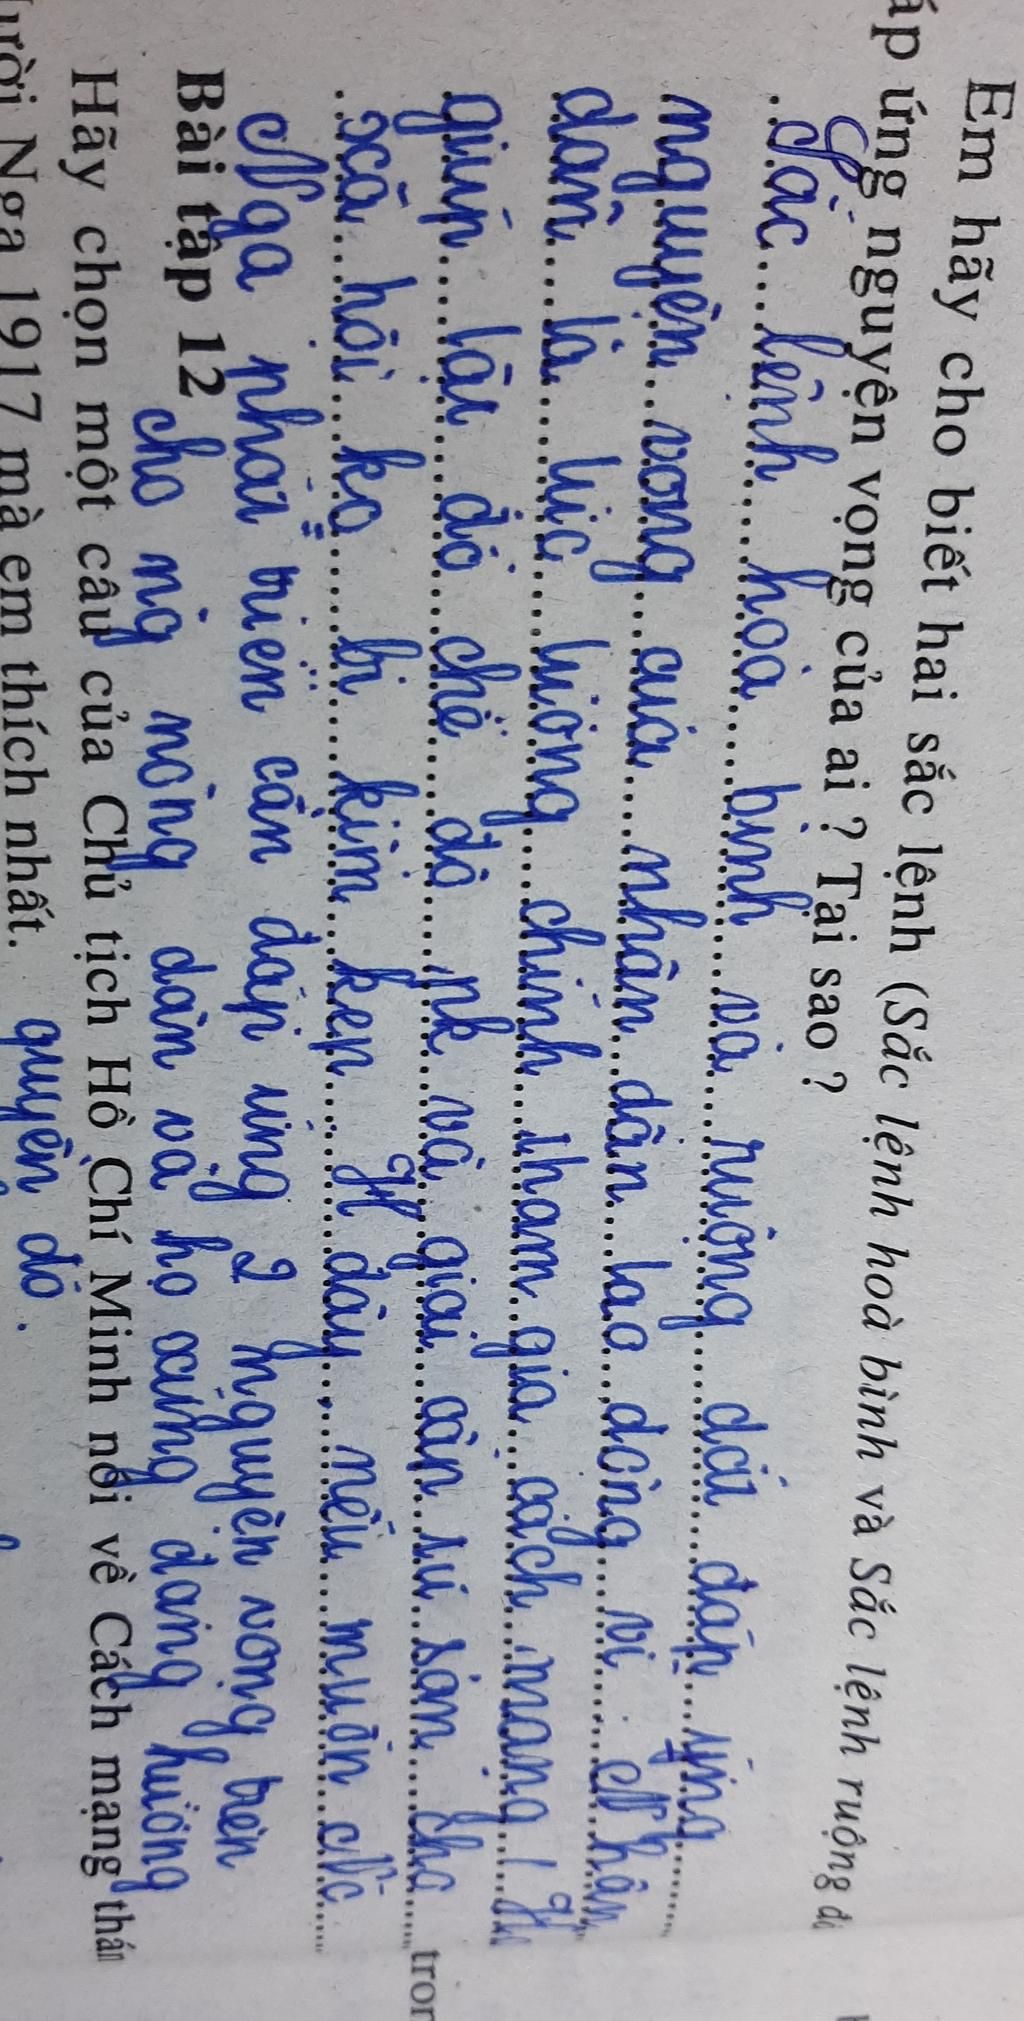 Em hãy cho biết hai sắc lệnh (Sắc lệnh hoà bình và Sắc lệnh ruộng
áp ứng nguyện vọng của ai ? Tại sao ?
Sắc lệnh hoà bình và ruộng đất đáp ứng
nguyện vọng của nhân dân lao động vì Nhân
dân là lực lượng chính tham gia cách mạng,
giúp lật đổ chế độ pk và giai cấp tư sản cho
xã hội ko bị kìm kẹp. Vì đây nếu muốn
Nga phát triển cần đáp ứng 2 nguyện vọng trên
Bài tập 12
cho ng nông dân và họ xứng đáng hưởng
Hãy chọn một câu của Chủ tịch Hồ Chí Minh nói về Cách mạng
ười Nga 1917 mà em thích nhất.
quyền đó.